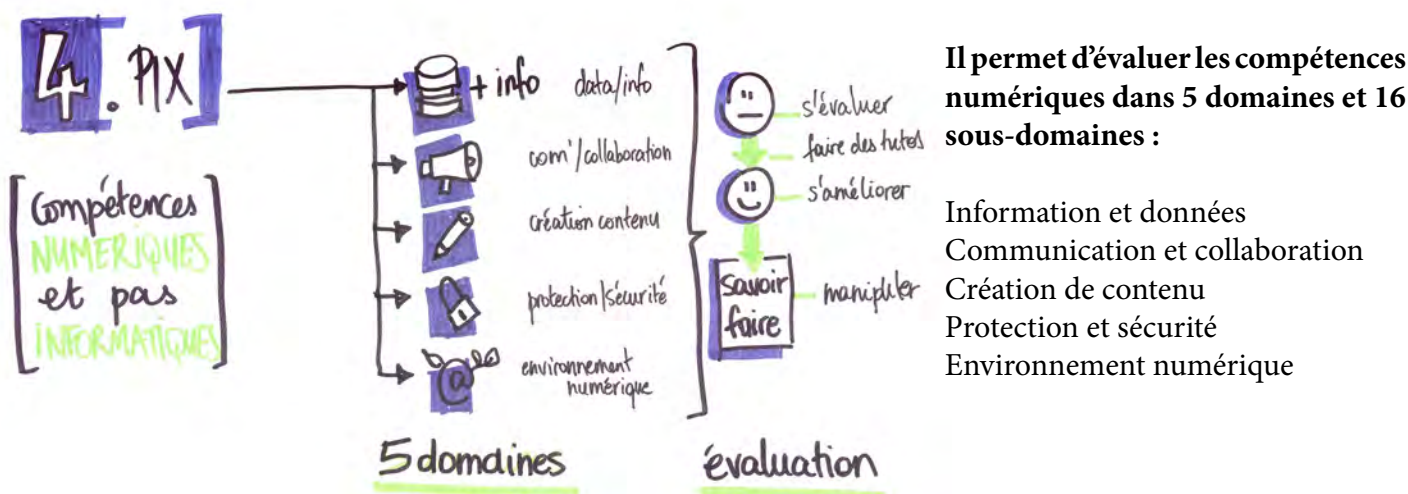 4. PIX
Compétences
NUMERIQUES
et pas
INFORMATIQUES
+ info
data/info
com'/collaboration
création contenu
protection/sécurité
@
environnement
numérique
5 domaines
s'évaluer
faire des tutos
s'améliorer
savoir
faire
manipuler
évaluation
Il permet d'évaluer les compétences
numériques dans 5 domaines et 16
sous-domaines :
Information et données
Communication et collaboration
Création de contenu
Protection et sécurité
Environnement numérique